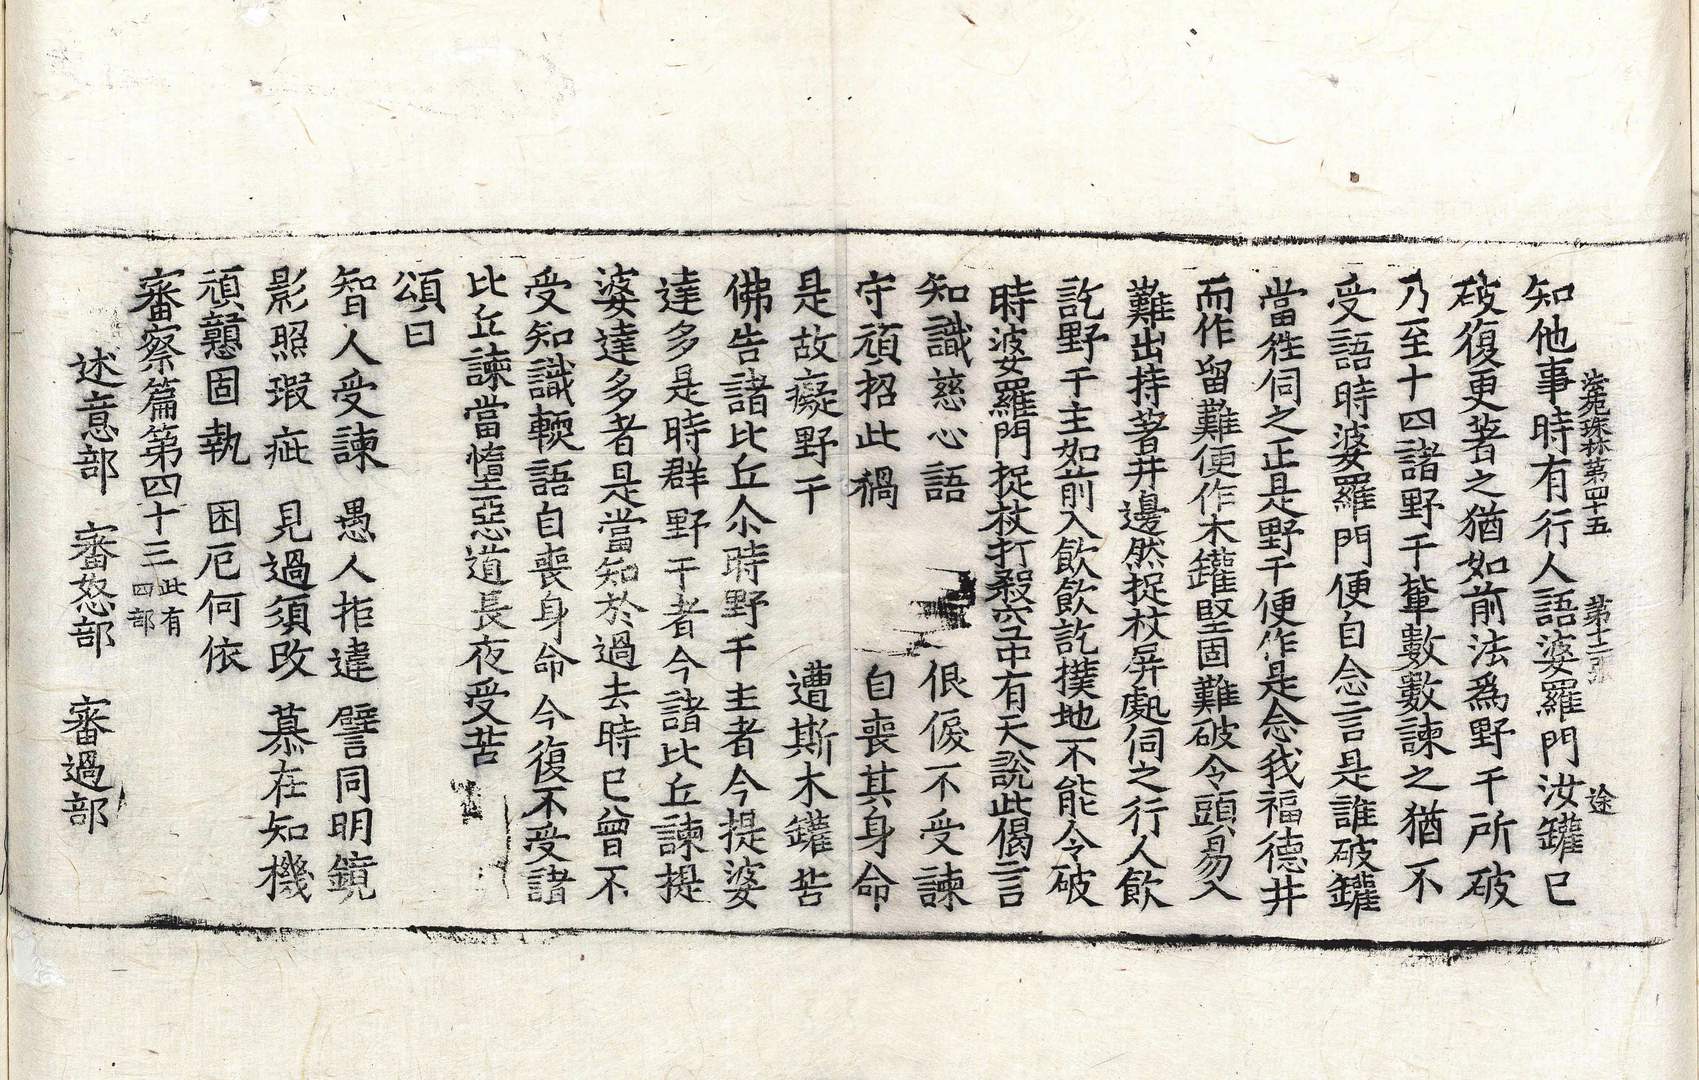 法苑珠林第四十五 第十二張 途
知他事時有行人語婆羅門汝罐已
破復更著之猶如前法爲野干所破
乃至十四諸野干輩數數諫之猶不
受語時婆羅門便自念言是誰破罐
當往伺之正是野干便作是念我福德井
而作留難便作木罐堅固難破令頭易入
難出持著井邊然捉杖屏處伺之行人飲
訖野干主如前入飲飲訖撲地不能令破
時婆羅門捉杖打殺空中有天說此偈言
知識慈心語 佷傢不受諫
守頑招此禍 自喪其身命
是故癡野干 遭斯木罐苦
佛告諸比丘尒時野干主者今提婆
達多是時群野干者今諸比丘諫提
婆達多者是當知於過去時已曾不
受知識輭語自喪身命今復不受諸
比丘諫當墮惡道長夜受苦
頌曰
智人受諫 愚人拒違 譬同明鏡
影照瑕疵 見過須改 慕在知機
頑戇固執 困厄何依
審察篇第四十三 此有四部
述意部 審怒部 審過部